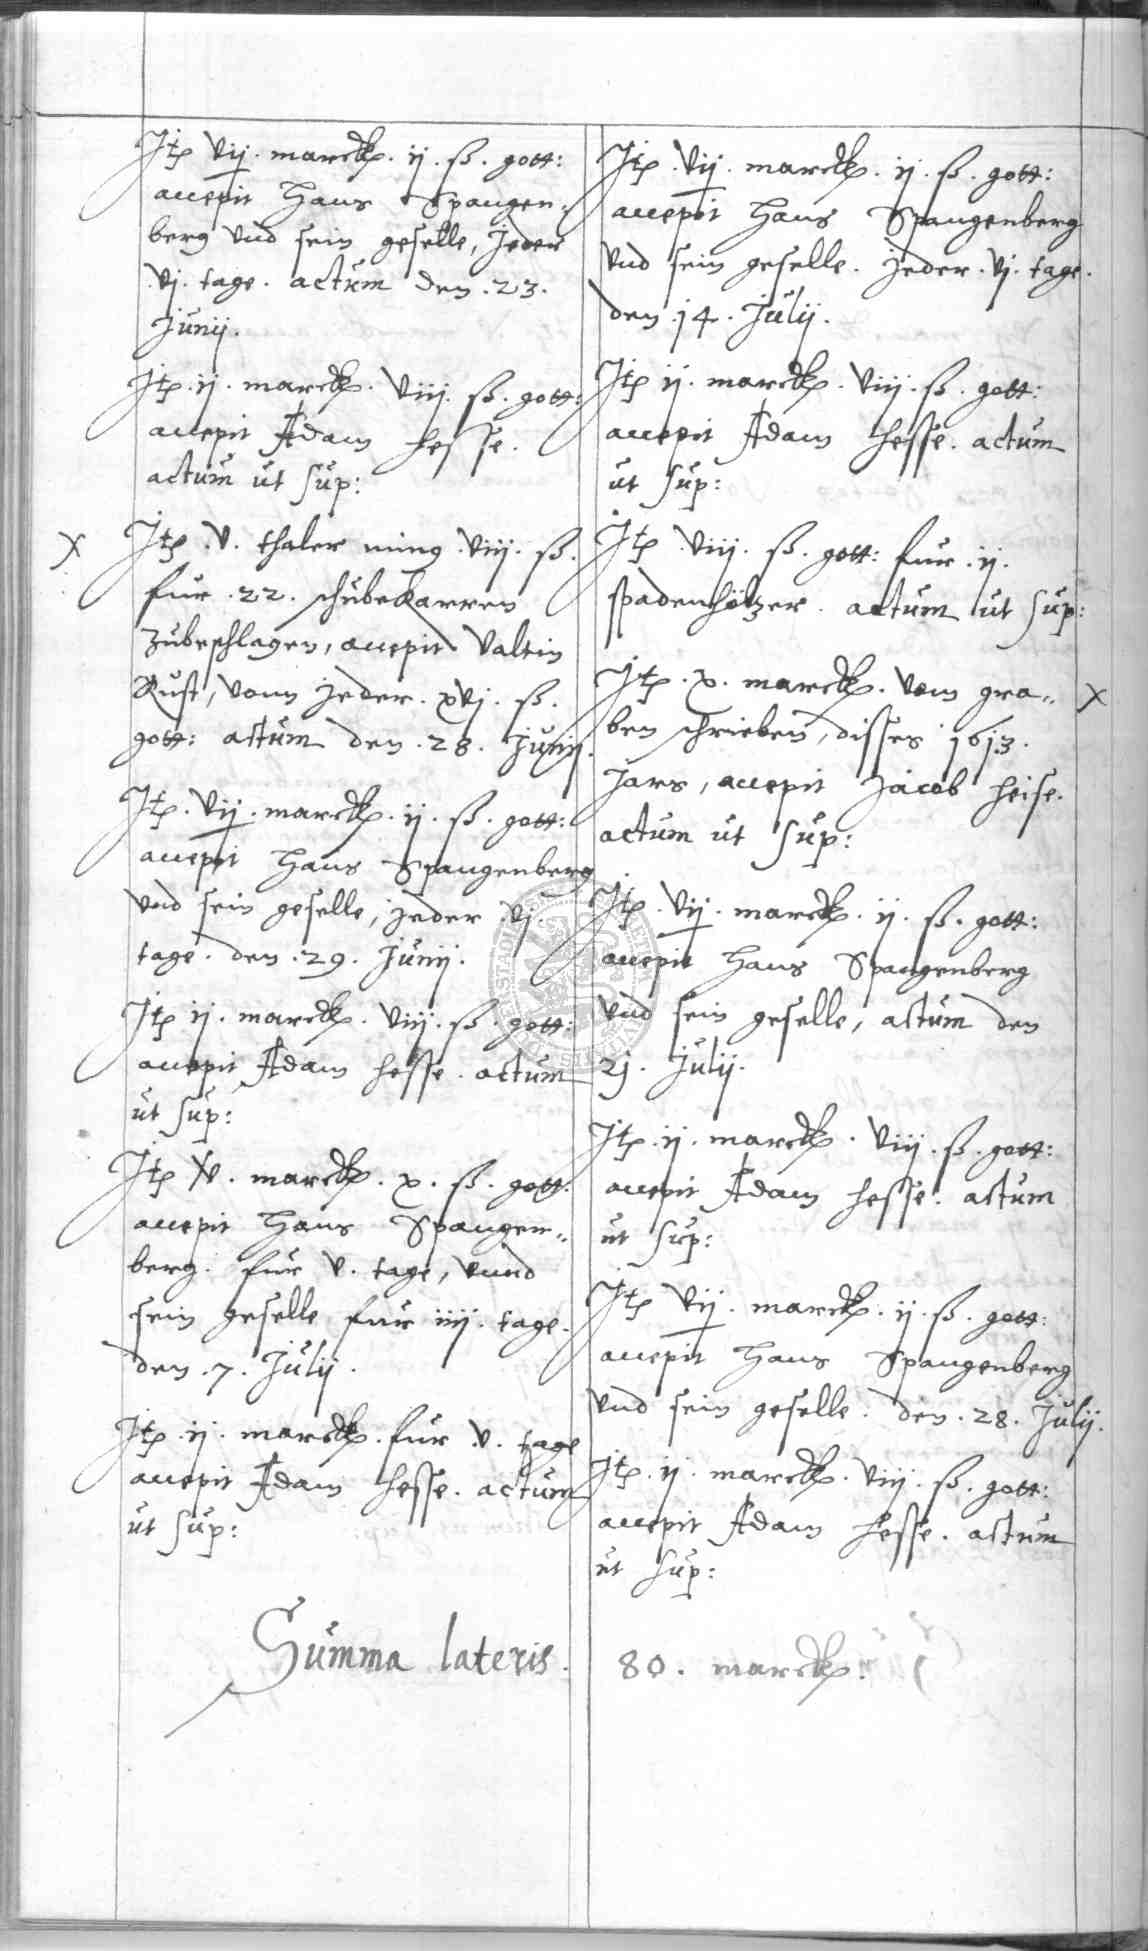 Jtem vij. marck. ij. ß. gott:
accepit Hans Spangen-
berg vnd sein geselle, Jeder
vj. tage. actum den .23.
Junij.
Jtem .ij. marck. viij. ß. gott:
accepit Adam Hesse.
actum ut sup:
x Jtem .v. thaler ming viij. ß.
fur .22. schubekarren
zubeschlagen, accepit Valtin
Rust, vonn Jeder. xvj. ß.
gott: actum den .28. Junij.
Jtem. vij. marck. ij. ß. gott:
accepit Hans Spangenberg
vnd sein geselle, Jeder vj.
tage. den .29. Junij.
Jtem ij. marck. viij. ß. gott:
accepit Adam Hesse. actum
ut sup:
Jtem v. marck. x. ß. gott.
accepit Hans Spangen„
berg. fur v. tage, vnnd
sein geselle fur iiij. tage.
den .7. Julij.
Jtem .ij. marck. fur .v. tage
accepit Adam Hesse. actum
ut sup:
Jtem. vij. marck. ij. ß. gott:
accepit Hans Spangenberg
vnd sein geselle. Jeder. vj. tage.
den .14. Julij.
Jtem ij. marck. viij. ß. gott:
accepit Adam Hesse. actum
ut sup:
Jtem viij. ß. gott: fur .ij.
spadenhöltzer. actum ut sup:
Jtem .x. marck. vom gra„ x
ben schrieben, disses 1613.
Jars, accepit Jacob Heise.
actum ut sup:
Jtem. vij. marck. ij. ß. gott:
accepit Hans Spangenberg
vnd sein geselle, actum den
21. Julij.
Jtem .ij. marck. viij. ß. gott:
accepit Adam Hesse. actum
ut sup:
Jtem vij. marck. ij. ß. gott:
accepit Hans Spangenberg
vnd sein geselle. den .28. Julij.
Jtem .ij. marck. viij. ß. gott:
accepit Adam Hesse. actum
ut sup:
Summa lateris. 80. marck.